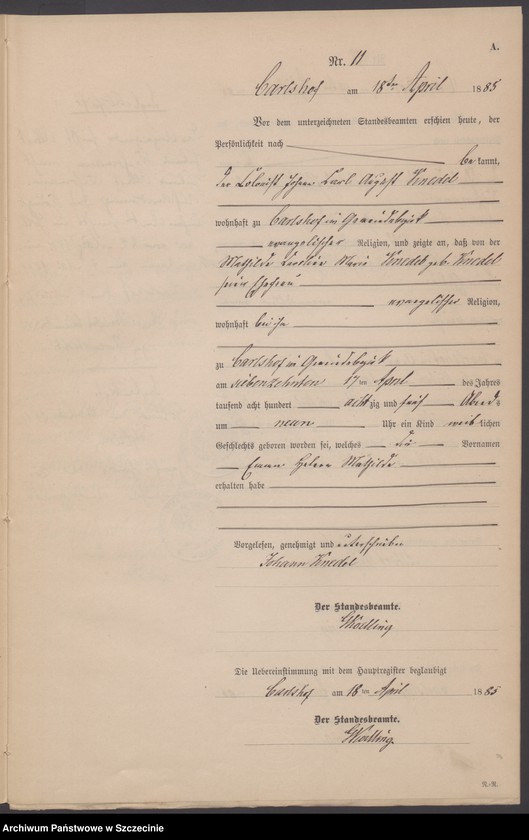 A.
Nr. 11
Carlshof am 18ten April 1885
Vor dem unterzeichneten Standesbeamten erschien heute, der
Persönlichkeit nach
bekannt,
der Colonist Johann Carl August Knedel
wohnhaft zu Carlshof im Gemeindebezirk
evangelischer Religion, und zeigte an, daß von der
Mathilde Marie Knedel geb. Knedel
seiner Ehefrau
evangelischer Religion,
wohnhaft bei ihm
zu Carlshof im Gemeindebezirk
am siebenzehnten 17ten April des Jahres
tausend acht hundert achtzig und fünf Abends
um neun Uhr ein Kind weiblichen
Geschlechts geboren worden sei, welches die Vornamen
Emma Helene Mathilde
erhalten habe
Vorgelesen, genehmigt und unterschrieben
Johann Knedel
Der Standesbeamte.
Die Uebereinstimmung mit dem Hauptregister beglaubigt
Carlshof am 18ten April 1885
Der Standesbeamte.
Archiwum Państwowe w Szczecinie